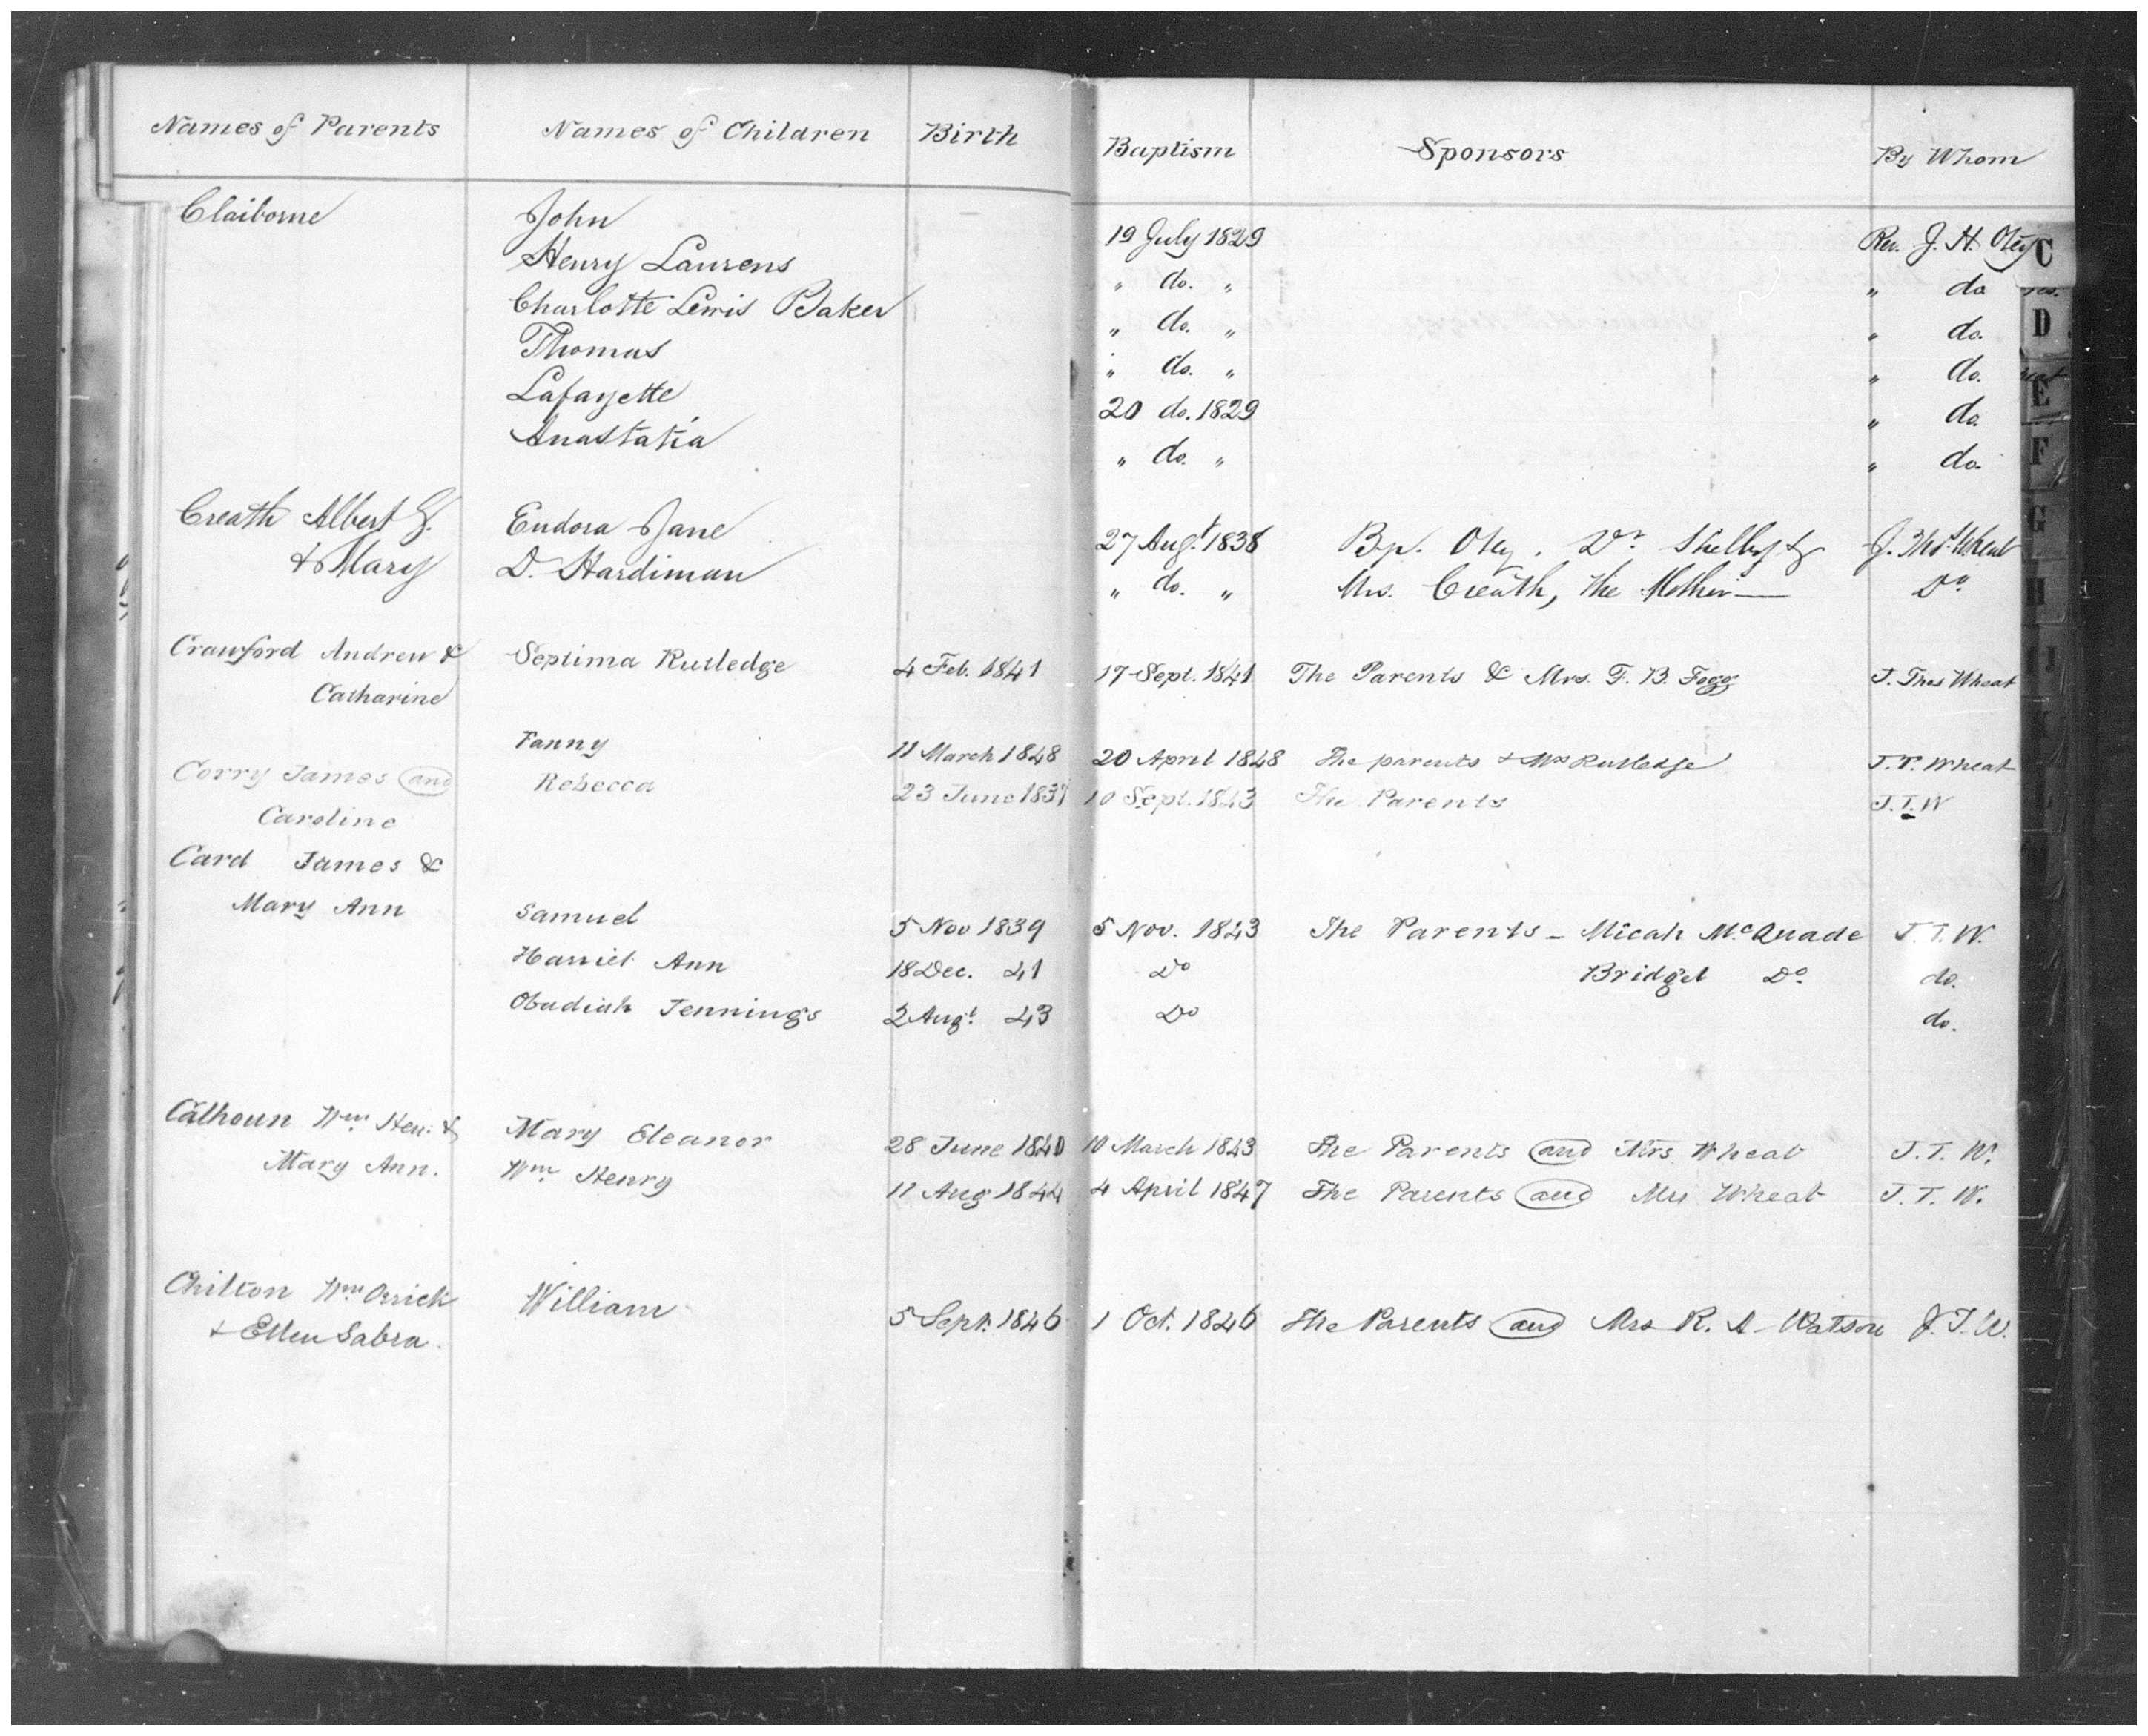 Names of Parents Names of Children Birth Baptism Sponsors By Whom
Claiborne John 19 July 1829 Rev. J. H. Otey
Henry Laurens " do. " " do
Charlotte Lewis Baker " do. " " do.
Thomas " do. " " do.
Lafayette 20 do. 1829 " do.
Anastatia " do. " " do.
Creath Albert G. Eudora Jane 27 Augt. 1838 Bp. Otey. Dr. Shelby & J. Thos. Wheat
& Mary D. Hardiman " do. " Mrs. Creath, the Mother — Do
Crawford Andrew & Septima Rutledge 4 Feb. 1841 17 Sept. 1841 The Parents & Mrs. F. B. Fogg J. Thos Wheat
Catharine
Fanny 11 March 1848 20 April 1848 The parents & Mrs Rutledge J. T. Wheat
Corry James and Rebecca 23 June 1837 10 Sept. 1843 The Parents J. T. W
Caroline
Card James &
Mary Ann Samuel 5 Nov 1839 5 Nov. 1843 The Parents – Micah McQuade J. T. W.
Harriet Ann 18 Dec. 41 Do Bridget Do. do.
Obadiah Jennings 2 Augt. 43 Do do.
Calhoun Wm. Hen. & Mary Eleanor 28 June 1840 10 March 1843 The Parents and Mrs. Wheat J. T. W.
Mary Ann. Wm. Henry 11 Aug 1844 4 April 1847 The Parents and Mrs Wheat J. T. W.
Chilton Wm. Orrick William 5 Sept. 1846 1 Oct. 1846 The Parents and Mrs R. A. Watson J. T. W.
& Ellen Sabra.
C
D
E
F
G
H
J
L